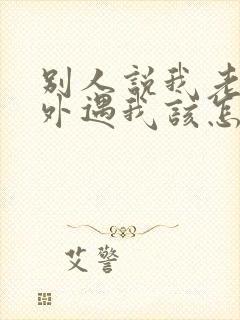 别人说我老
外遇我该怎
艾警